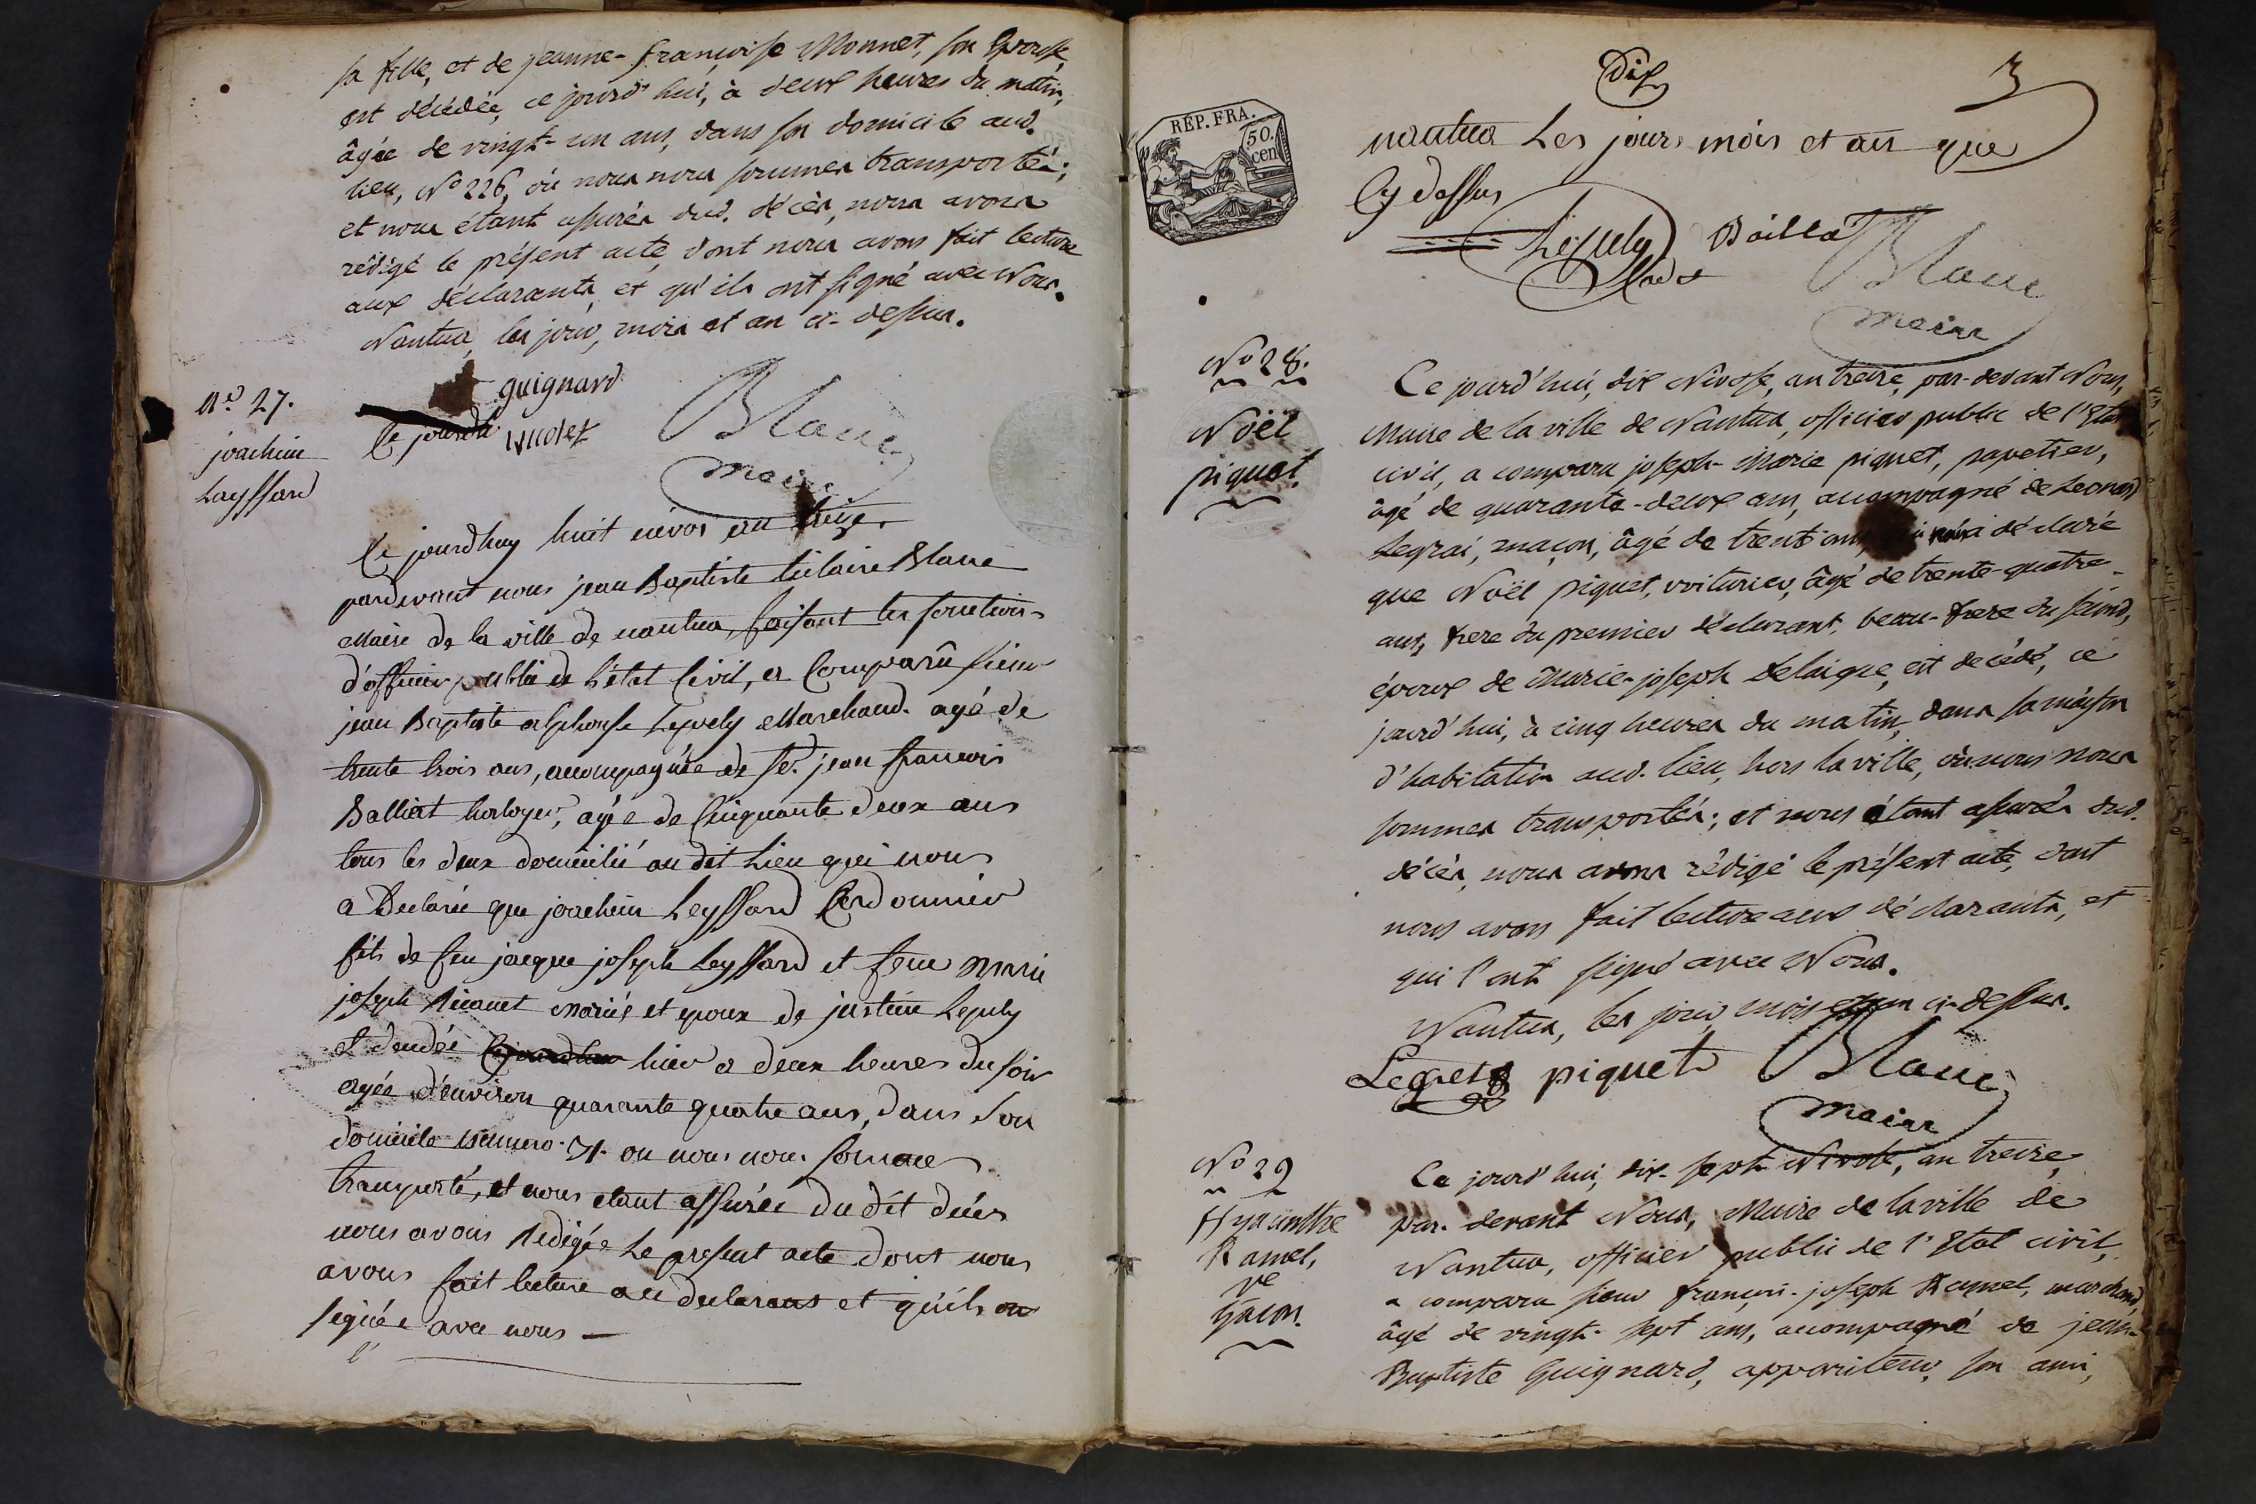 sa fille, et de jeanne-françoise Monnet, son Epouse,
est décédée, ce jourd'hui, à deux heures du matin,
âgée de vingt-un ans, dans son domicile aud.
lieu, No 226, où nous nous sommes transportés;
et nous étant assurés dud. décès, nous avons
rédigé le présent acte, dont nous avons fait lecture
aux déclarants, et qu'ils ont signé avec Nous.
Nantua, les jour, mois et an ci-dessus.
guignard
Ce jourdh
Blanc
maire
No 27.
joachim
Leyssard
Ce jourdhuy huit nivos an treize.
pardevant nous jean Baptiste hilaire Blanc
Maire de la ville de nantua, faisant les fonctions
d'officier public de l'état Civil, a Comparû sieur
jean Baptiste alphonse Lepely Marchand. agé de
trente trois ans, accompagnée de Sr. jean francois
Balliat horloger, agée de Cinquante deux ans
tous les deux domicilié au dit Lieu qui nous
a Declarée que joachim Leyssard Cordonnier
fils de feu jacque joseph Leyssard et feue marie
joseph Mariée et epoux de justine Lepely
et decedée hier a deux heures du soir
agée d'environ quarante quatre ans, dans Son
domicile numero 71. ou nous nous somme
transporté, et nous etant assurée du dit décés
nous avons Redigée Le present acte dont nous
avons fait lecture au declarans et qu'ils on
signée avec nous —
Dix
3
RÉP. FRA.
50.
cen
nantua Les jours mois et an que
Cy dessus
Lepely Bailla
Blanc
maire
No 28.
Noël
piquet.
Ce jourd'hui, dix Nivose, an treize, par-devant Nous,
Maire de la ville de Nantua, officier public de l'Etat
civil, a comparu joseph-Marie piquet, papetier,
âgé de quarante-deux ans, accompagné de Leonard
Legrai, maçon, âgé de trente ans, déclaré
que Noël piquet, voiturier, âgé de trente-quatre
ans, frere du premier déclarant, beau-frere du second,
époux de Marie-joseph Delaigue, est decédé, ce
jourd'hui, à cinq heures du matin, dans sa maison
d'habitation aud. lieu, hors la ville, où nous nous
sommes transportés; et nous étant assurés dud.
décès, nous avons rédigé le présent acte, dont
nous avons fait lecture aux déclarants, et
qui l'ont signé avec Nous.
Nantua, les jour, mois et an ci-dessus.
Legret piquet Blanc
maire
No 29
Hyacinthe
Ramel,
ve
Gacon.
Ce jourd'hui, dix-sept Nivose, an treize,
par-devant Nous, Maire de la ville de
Nantua, officier public de l'Etat civil,
a comparu sieur françois-joseph Ramel, marchand,
âgé de vingt-sept ans, accompagné de jean-
Baptiste Guignard, appariteur, son ami,